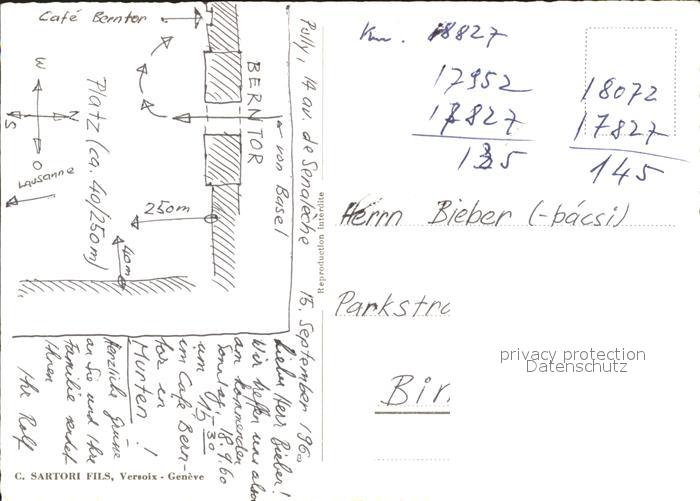 Café Berntor
BERNTOR
von Basel
W
N
S
O
Lausanne
Platz (ca. 40/250m)
250m
40m
Pully, 14 av. de Senalèche 15. September 1960
Lieber Herr Bieber!
Wir treffen uns also
am kommenden
Sonntag, 18.9.60
um 15.30
im Café Bern-
tor in
Murten!
Herzliche Grüsse
an Sie und Ihre
Familie sendet
Ihnen
Ihr Rolf
C. SARTORI FILS, Versoix - Genève
Reproduction Interdite
Km. 18827
17952
17827
125
18072
17827
145
Herrn Bieber (-bácsi)
Parkstra
Bir
privacy protection
Datenschutz